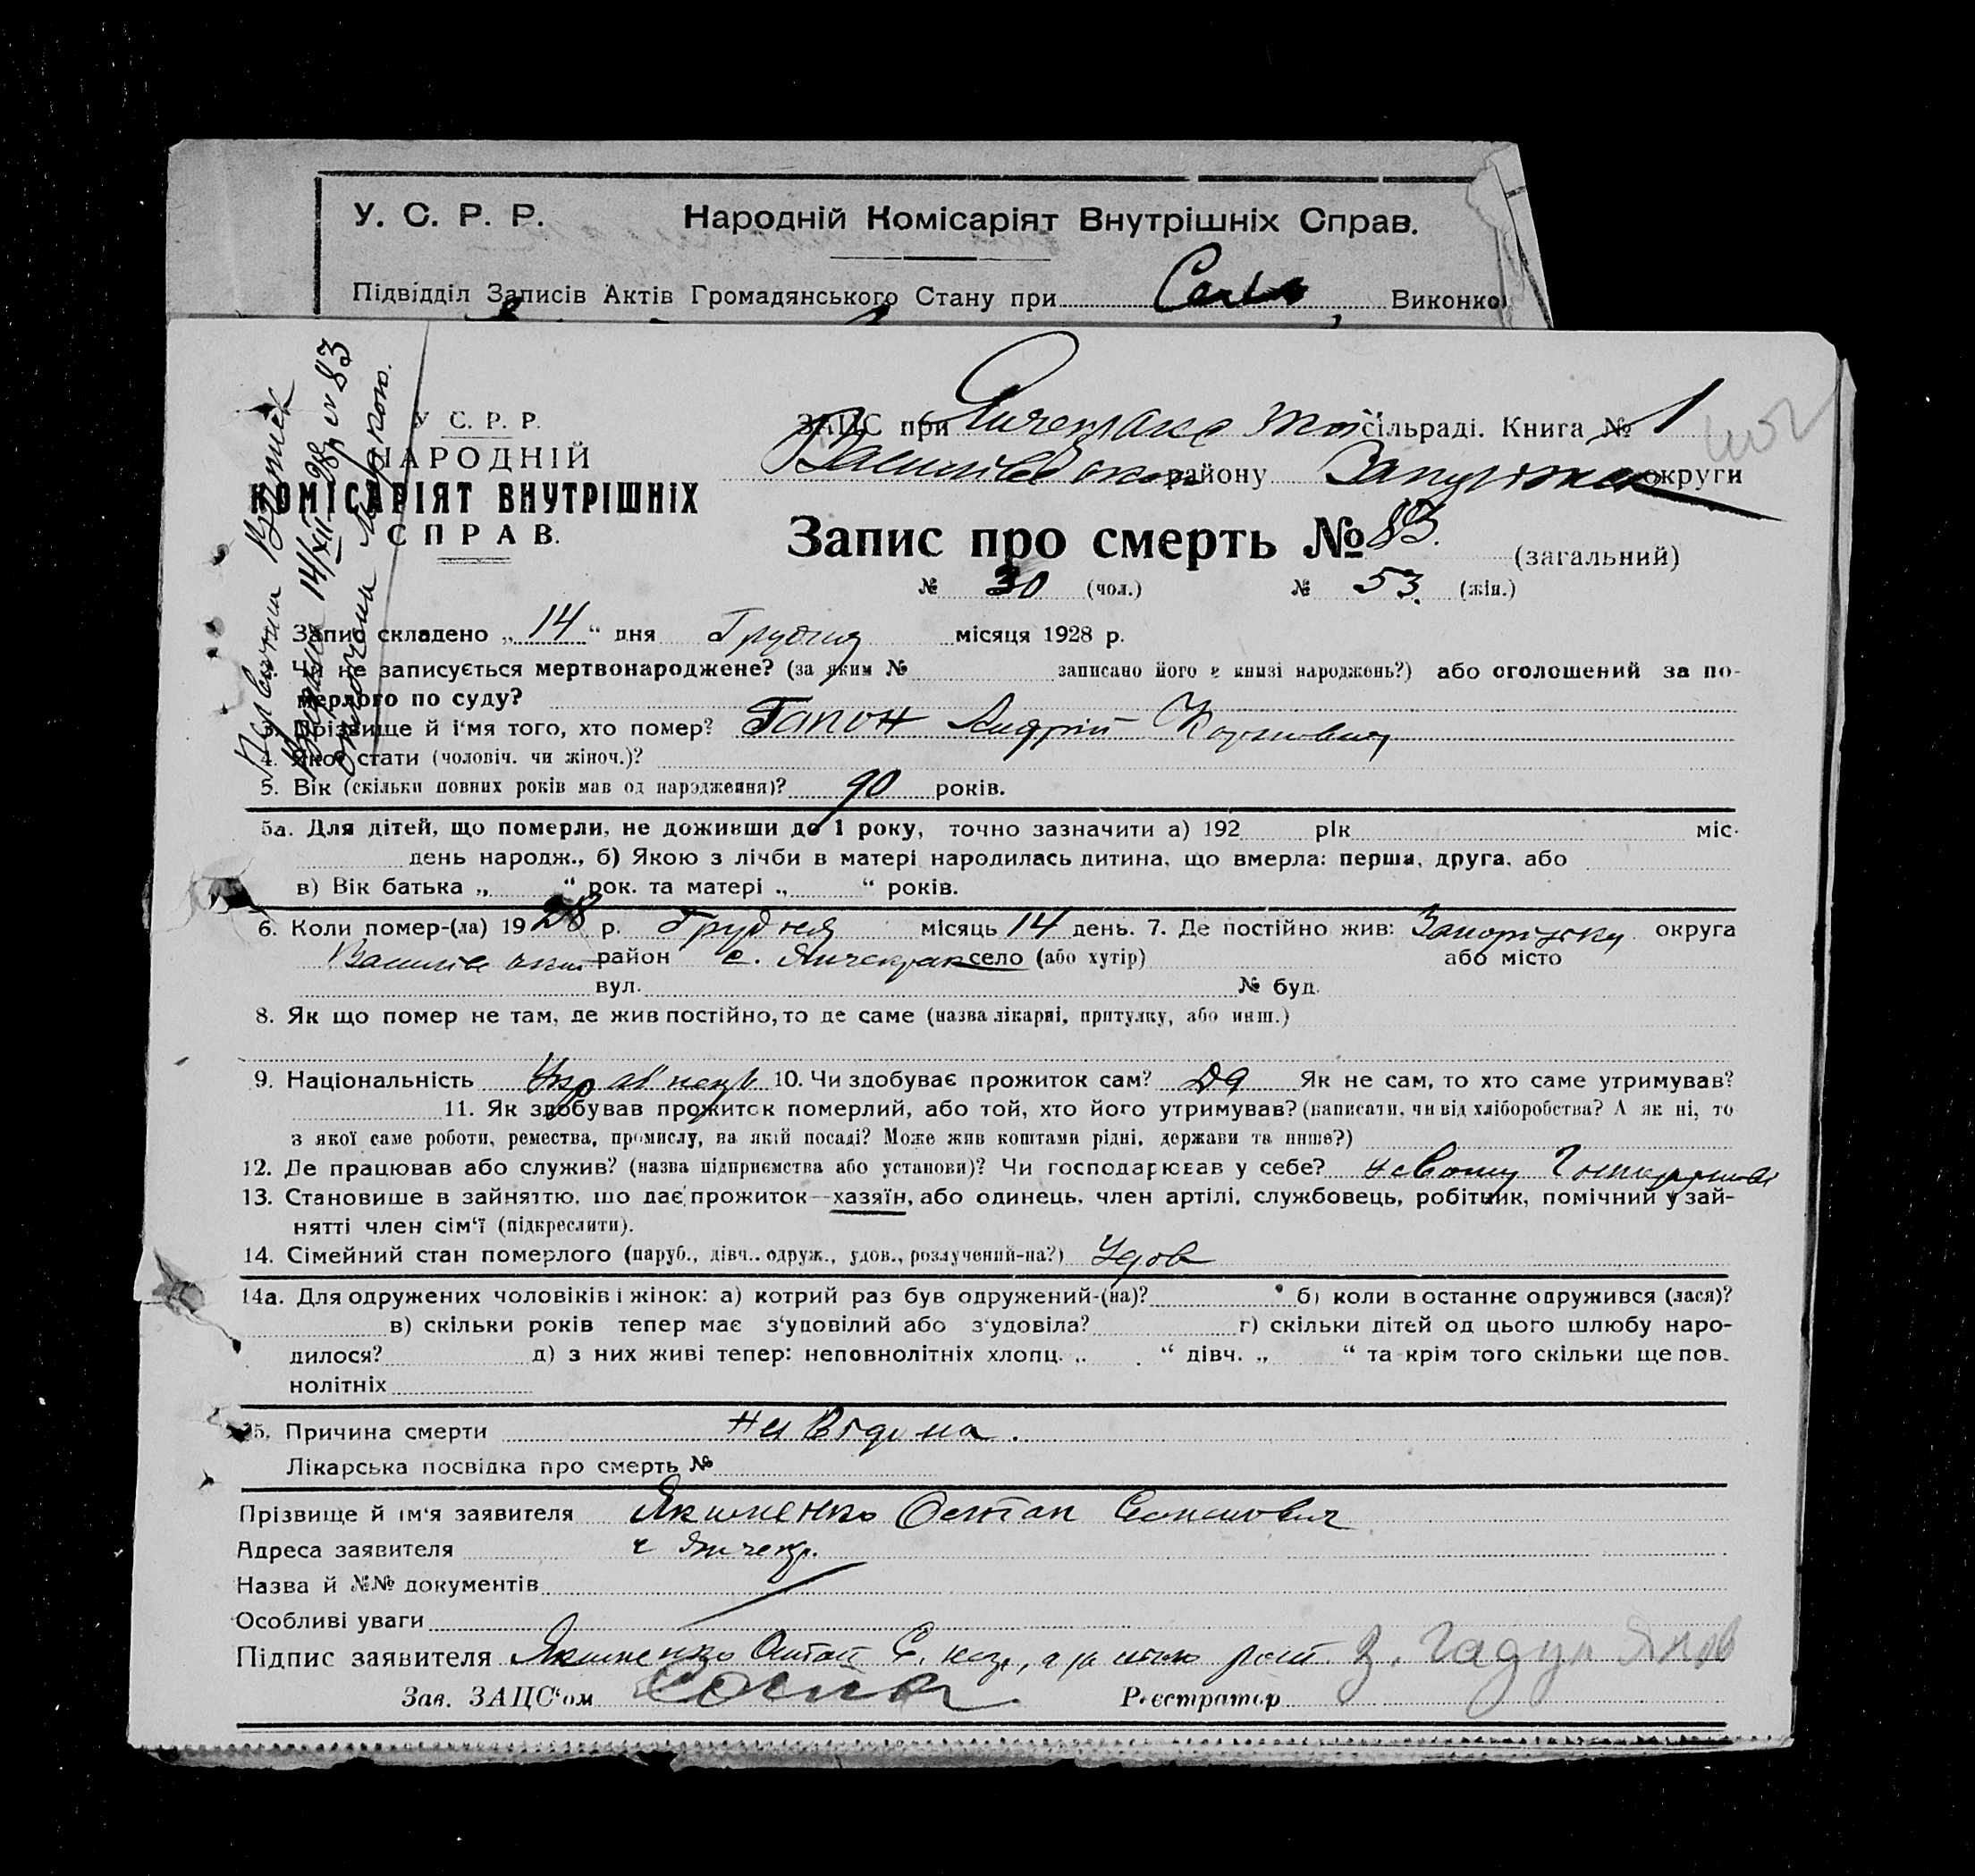 У. С. Р. Р. Народній Комісаріят Внутрішніх Справ.
Підвідділ Записів Актів Громадянського Стану при Виконко
У С. Р. Р.
НАРОДНІЙ
КОМІСАРІЯТ ВНУТРІШНІХ
СПРАВ.
14/XII-28р № 83
ЗАЦС при сільраді. Книга № 1
району округи
Запис про смерть № 83. (загальний)
№ 30 (чол.) № 53. (жін.)
Запис складено „14“ дня Грудня місяця 1928 р.
Чи не записується мертвонароджене? (за яким № записано його в книзі народжень?) або оголошений за по-
мерлого по суду?
3. Прізвище й і'мя того, хто помер? Гапон Андрій
4. Якої стати (чоловіч. чи жіноч.)?
5. Вік (скільки повних років мав од народження)? 90 років.
5а. Для дітей, що померли, не доживши до 1 року, точно зазначити а) 192 рік міс.
день народж., б) Якою з лічби в матері народилась дитина, що вмерла: перша, друга, або
в) Вік батька „ “ рок. та матері „ “ років.
6. Коли помер-(ла) 1928 р. Грудня місяць 14 день. 7. Де постійно жив: Запорізьку округа
район с. Янчекрак село (або хутір) або місто
вул. № буд.
8. Як що помер не там, де жив постійно, то де саме (назва лікарні, притулку, або инш.)
9. Національність 10. Чи здобуває прожиток сам? Да Як не сам, то хто саме утримував?
11. Як здобував прожиток померлий, або той, хто його утримував? (написати, чи від хліборобства? А як ні, то
з якої саме роботи, ремества, промислу, на якій посаді? Може жив коштами рідні, держави та инше?)
12. Де працював або служив? (назва підприємства або установи)? Чи господарював у себе?
13. Становище в зайняттю, що дає прожиток—хазяїн, або одинець, член артілі, службовець, робітник, помічний у зай-
нятті член сім'ї (підкреслити).
14. Сімейний стан померлого (паруб., дівч.. одруж., удов., розлучений-на?) Удов
14а. Для одружених чоловіків і жінок: а) котрий раз був одружений-(на)? б) коли в останнє одружився (лася)?
в) скільки років тепер має з'удовілий або з'удовіла? г) скільки дітей од цього шлюбу наро-
дилося? д) з них живі тепер: неповнолітніх хлопц. „ “ дівч. „ “ та крім того скільки ще пов.
нолітніх
15. Причина смерти не відома.
Лікарська посвідка про смерть №
Прізвище й ім'я заявителя Якименко Остап
Адреса заявителя с Янчекр.
Назва й №№ документів
Особливі уваги
Підпис заявителя Якименко
Зав. ЗАЦС'ом Реєстратор